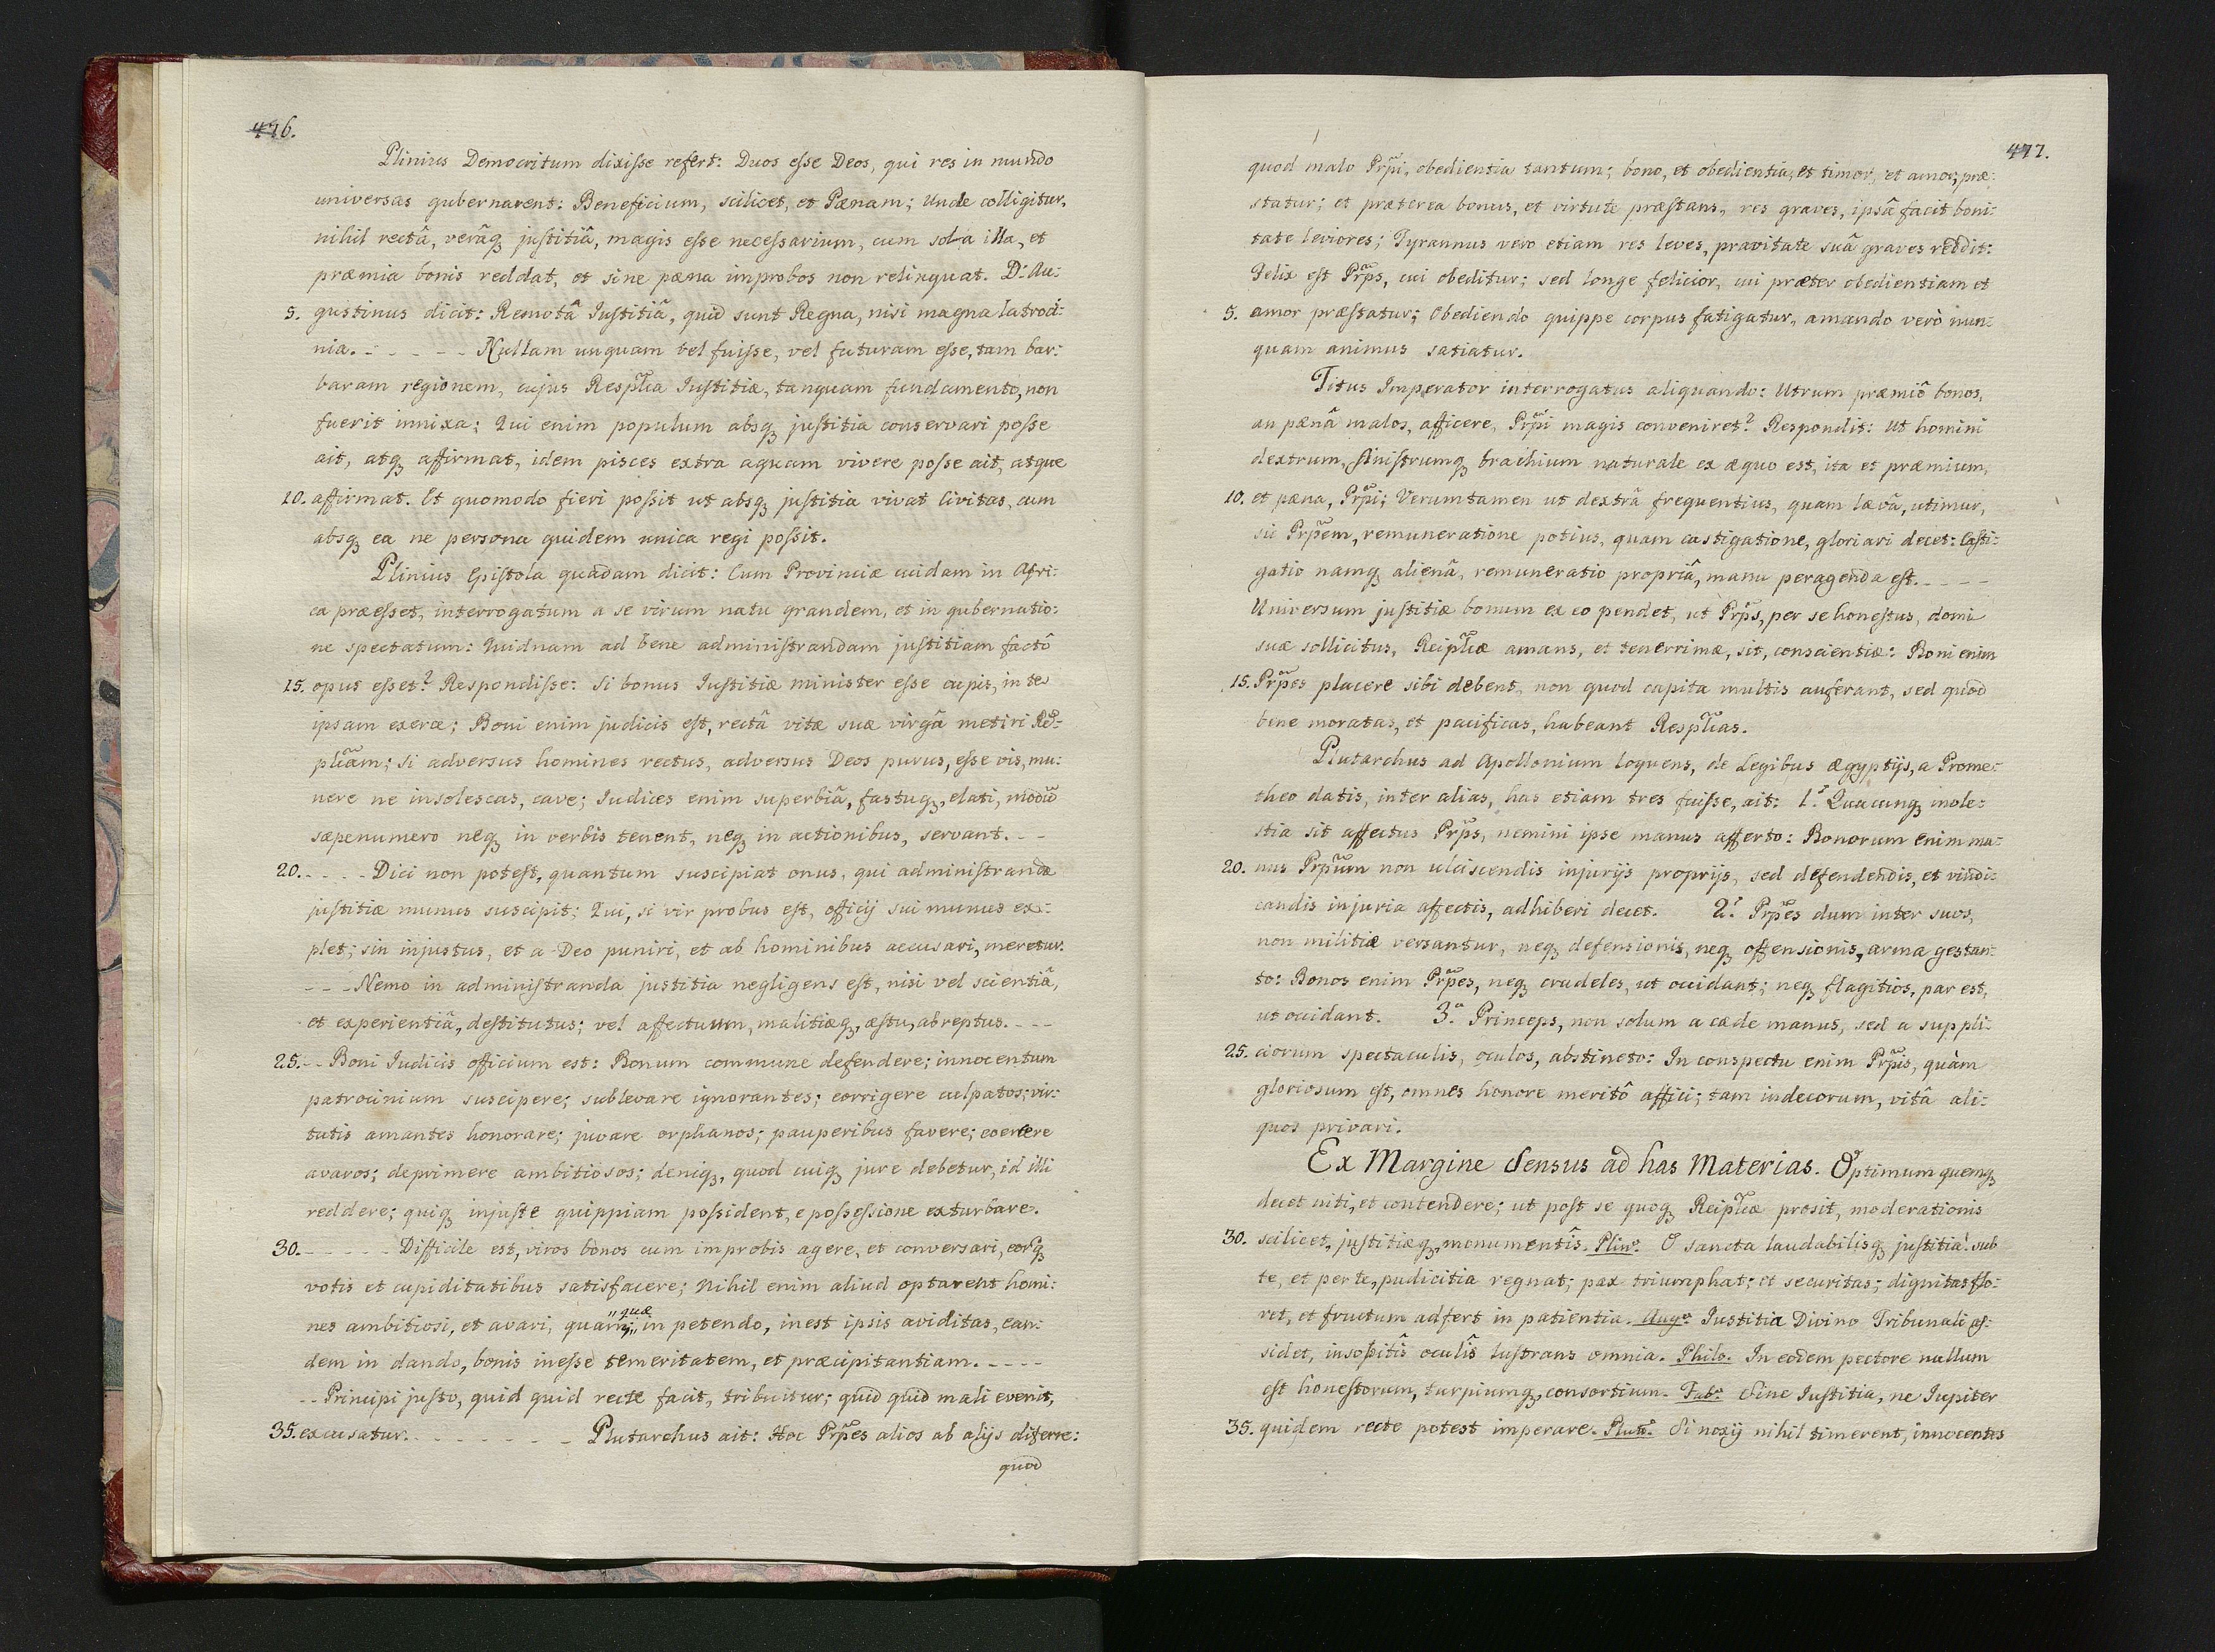 476.
Plinius Democritum dixisse refert: Duos esse Deos, qui res in mundo
universas gubernarent: Beneficium, scilicet, et Pænam; Unde colligitur,
nihil rectâ, verâq; justitiâ, magis esse necessarium, cum sola illa, et
præmia bonis reddat, et sine pæna improbos non relinquat. D. Au:
5. gustinus dicit: Remotâ Justitiâ, quid sunt Regna, nisi magna latroci:
nia. - - - - - Nullam unquam vel fuisse, vel futuram esse, tam bar:
baram regionem, cujus Resplca Justitiæ, tanquam fundamento, non
fuerit innixa: Qui enim populum absq; justitia conservari posse
ait, atq; affirmat, idem pisces extra aquam vivere posse ait, atque
10. affirmat. Et quomodo fieri possit ut absq; justitia vivat Civitas, cum
absq; ea ne persona quidem unica regi possit.
Plinius Epistola quadam dicit: Cum Provinciæ cuidam in Afri:
ca præesset, interrogatum a se virum natu grandem, et in gubernatio:
ne spectatum: Quidnam ad bene administrandam justitiam factô
15. opus esset? Respondisse: Si bonus Justitiæ minister esse cupis, in te
ipsam exerce; Boni enim judicis est, rectâ vitæ suæ virgâ metiri Res-
plcam; Si adversus homines rectus, adversus Deos purus, esse vis, mu:
nere ne insolescas, cave; Judices enim superbiâ, fastuq;, elati, modũ
sæpenumero neq; in verbis tenent, neq; in actionibus, servant. - -
20. - - - - Dici non potest, quantum suscipiat onus, qui administrandæ
justitiæ munus suscipit; Qui, si vir probus est, officij sui munus ex:
plet; sin injustus, et a Deo puniri, et ab hominibus accusari, meretur.
- - - Nemo in administranda justitia negligens est, nisi vel scientiâ,
et experientiâ, destitutus; vel affectuum, malitiæq;, æstu, abreptus. - - -
25. - - Boni Judicis officium est: Bonum commune defendere; innocentum
patrocinium suscipere; sublevare ignorantes; corrigere culpatos; vir:
tutis amantes honorare; juvare orphanos; pauperibus favere; coercere
avaros; deprimere ambitiosos; deniq;, quod cuiq; jure debetur, id illi
reddere; quiq; injuste quippiam possident, e possessione exturbare.
30. - - - - - Difficile est, viros bonos cum improbis agere, et conversari, eorq;
votis et cupiditatibus satisfacere; Nihil enim aliud optarent homi:
quæ
nes ambitiosi, et avari, quam, in petendo, inest ipsis aviditas, ean:
dem in dando, bonis inesse temeritatem, et præcipitantiam. - - - -
- - Principi justo, quid quid recte facit, tribuitur; quid quid mali evenit,
35. excusatur. - - - - - - - Plutarchus ait: Hoc Prp̃es alios ab alijs differre:
quod
477.
quod malo Prp̃i, obedientia tantum; bono, et obedientia, et timor, et amor, præ:
statur; et præterea bonus, et virtute præstans, res graves, ipsâ facit boni:
tate leviores; Tyrannus vero etiam res leves, pravitate suâ graves reddit:
Felix est Prp̃s, cui obeditur; sed longe felicior, cui præter obedientiam et
5. amor præstatur; Obediendo quippe corpus fatigatur, amando verò nun:
quam animus satiatur.
Titus Imperator interrogatus aliquando: Utrum præmiô bonos,
an pænâ malos, afficere, Prp̃i magis conveniret? Respondit: Ut homini
dextrum, sinistrumq; brachium naturale ex æquo est, ita et præmium,
10. et pæna, Prp̃i; Verumtamen ut dextrâ frequentius, quam lævâ, utimur,
sic Prp̃em, remuneratione potius, quam castigatione, gloriari decet: Casti:
gatio namq; alienâ, remuneratio propriâ, manu peragenda est. - - - -
Universum justitiæ bonum ex eo pendet, ut Prp̃s, per se honestus, domi
suæ sollicitus, Reiplcæ amans, et tenerrimæ, sit, conscientiæ: Boni enim
15. Prp̃es placere sibi debent, non quod capita multis auferant, sed quod
bene moratas, et pacificas, habeant Resplcas.
Plutarchus ad Apollonium loquens, de Legibus Ægyptijs, a Prome:
theo datis, inter alias, has etiam tres fuisse, ait: 1.ª Quacunq; mole:
stia sit affectus Prp̃s, nemini ipse manus afferto: Bonorum enim ma:
20. nus Prp̃um non ulciscendis injurijs proprijs, sed defendendis, et vindi:
candis injuria affectis, adhiberi decet. 2.ª Prp̃es dum inter suos,
non militiæ versantur, neq; defensionis, neq; offensionis, arma gestan:
to: Bonos enim Prp̃es, neq; crudeles, ut occidant; neq; flagitios, par est,
ut occidant. 3.ª Princeps, non solum a cæde manus, sed a suppli:
25. ciorum spectaculis, oculos, abstineto: In conspectu enim Prp̃is, quàm
gloriosum est, omnes honore meritô affici; tam indecorum, vitâ ali:
quos privari.
Ex Margine Sensus ad has Materias. Optimum quemq;
decet niti, et contendere; ut post se quoq; Reiplcæ prosit, moderationis
30. scilicet, justitiæq;, monumentîs. Plin.⁹ O sancta laudabilisq; justitia! sub
te, et per te, pudicitia regnat; pax triumphat; et securitas; dignitas flo:
ret, et fructum adfert in patientia. Aug.⁹ Justitia Divino Tribunali as:
sidet, insopitîs oculîs lustrans omnia. Philo. In eodem pectore nullum
est honestorum, turpiumq;, consortium. Fab.⁹ Sine Justitia, ne Jupiter
35. quidem recte potest imperare. Plut.⁹ Si noxij nihil timerent, innocentes